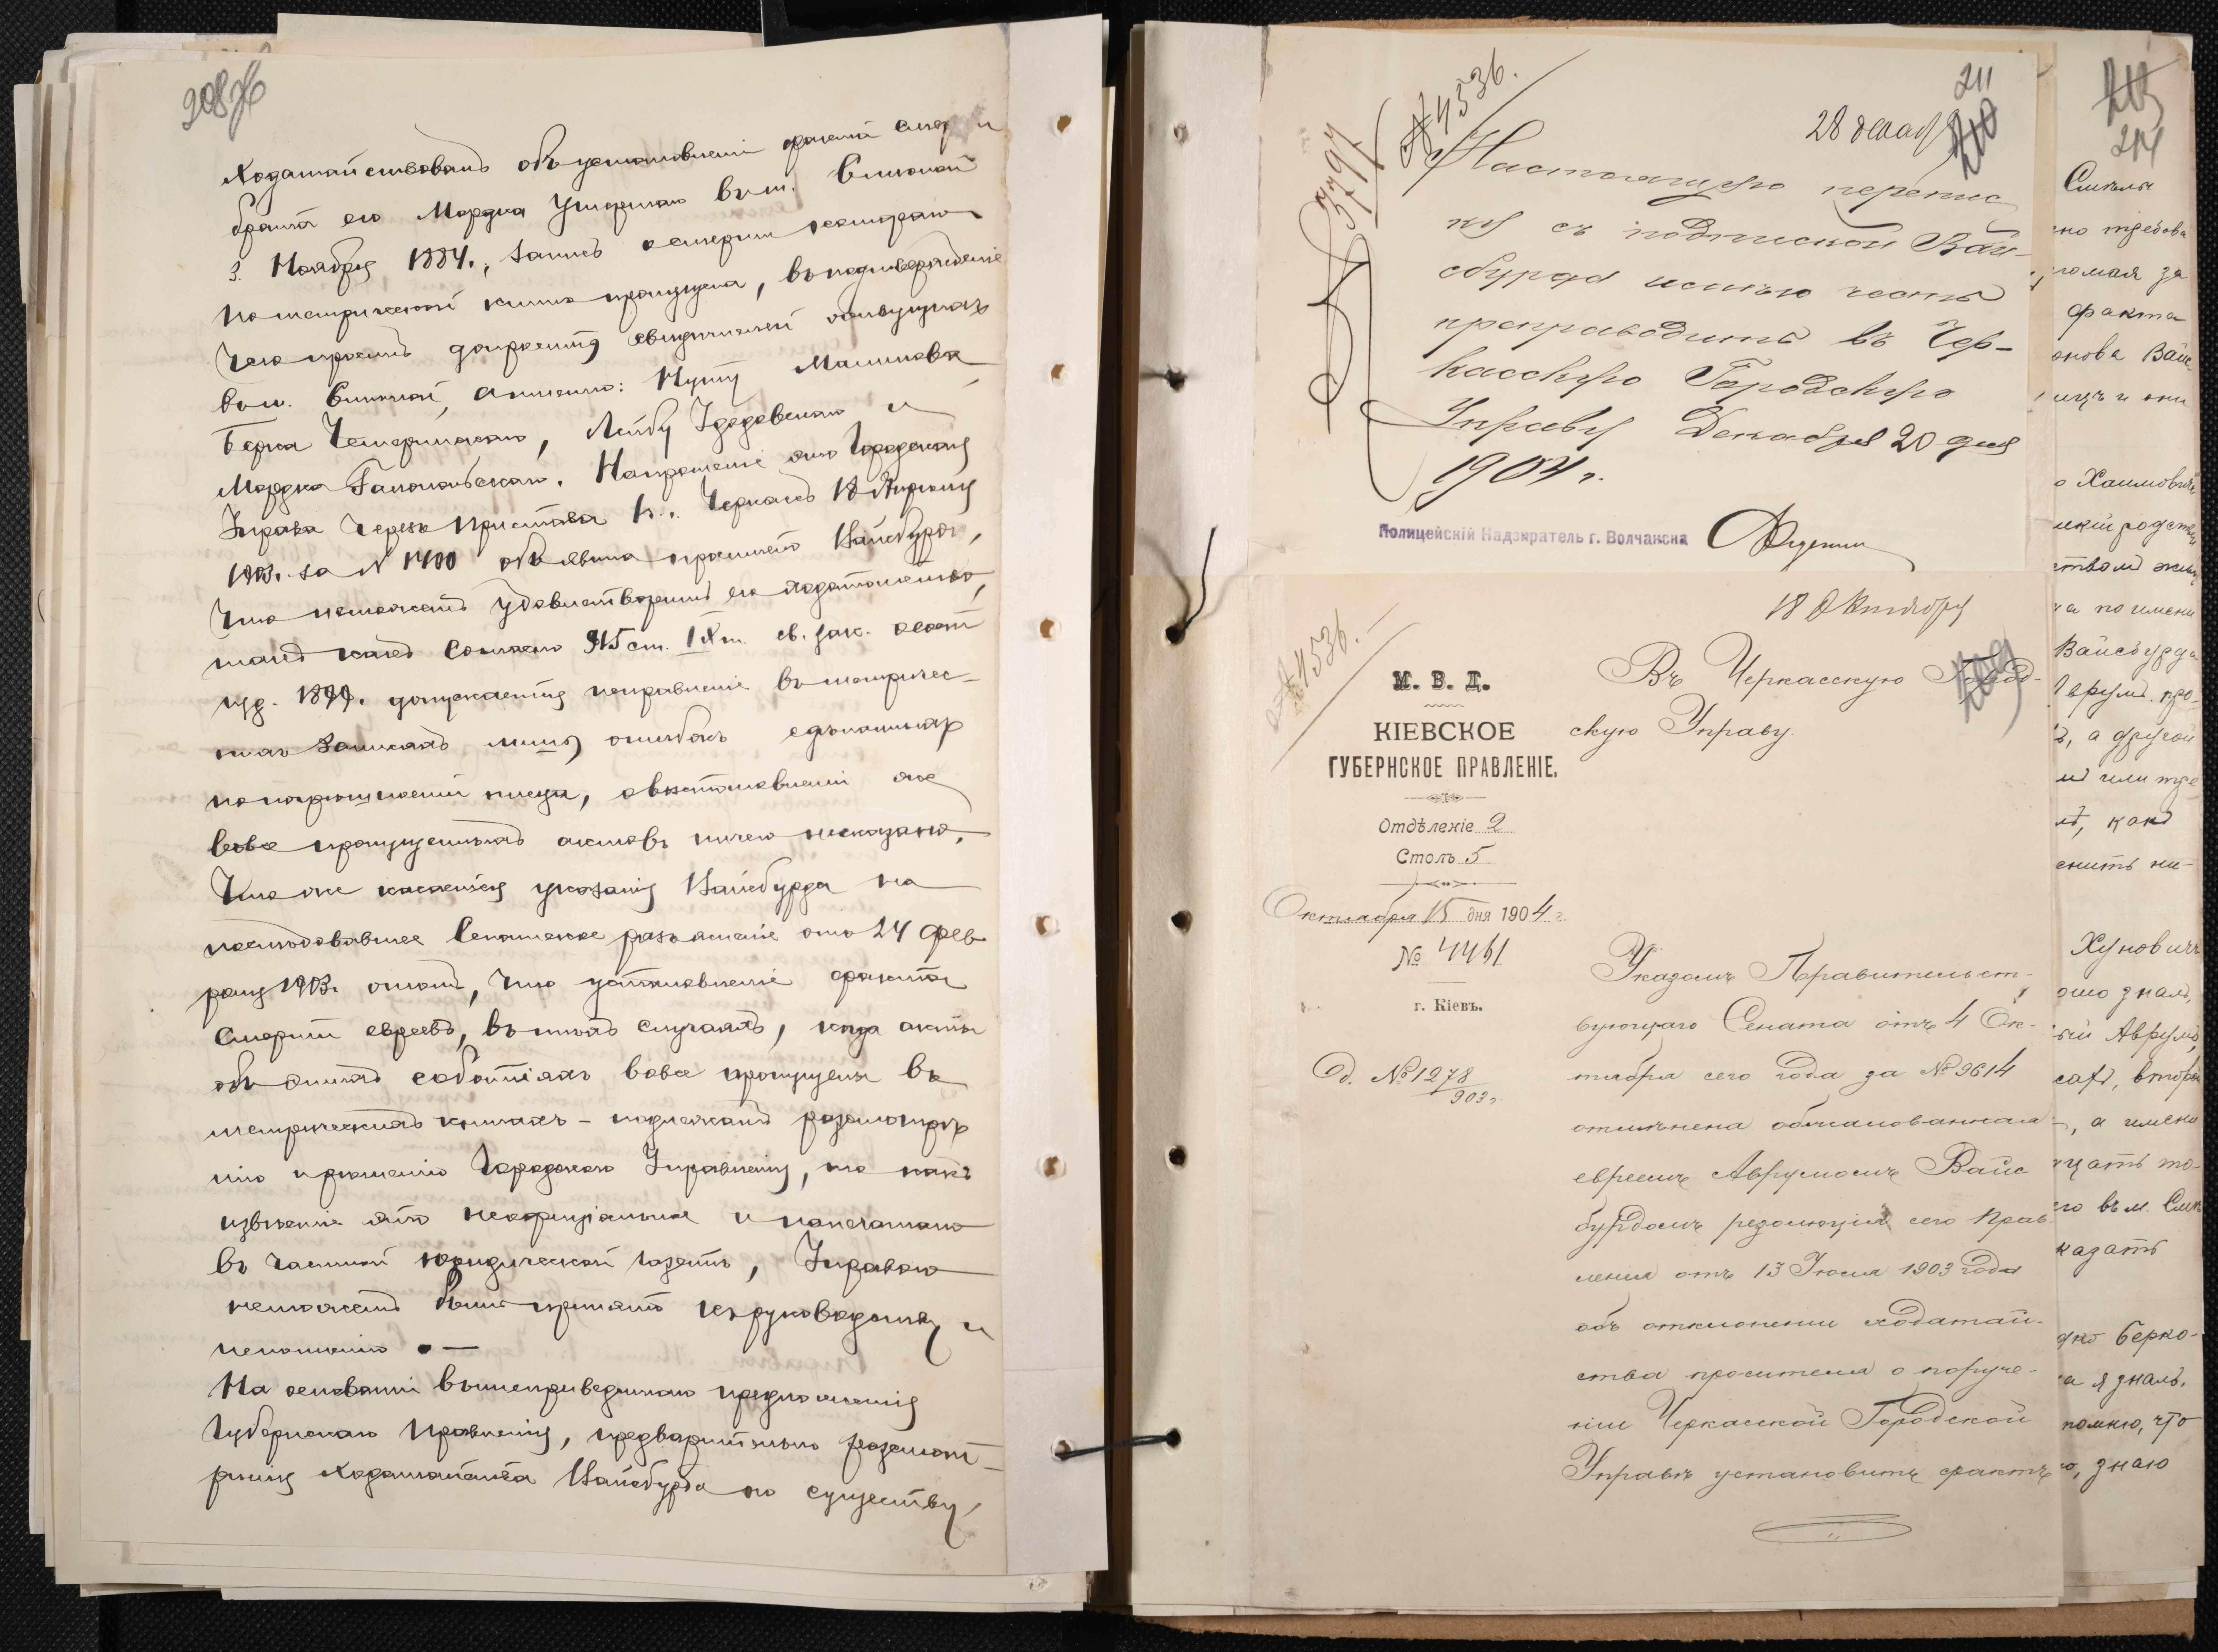 208 об
ходатайствовалъ объ установленіи факта смерти
брата его Мордка умершаго въ м. Смѣлой
3. Ноября 1884 г., запись о смерти котораго
по метрической книгѣ пропущена, въ подтвержденіе
чего просилъ допросить свидѣтелей живущихъ
въ м. Смѣлой, а именно: Нуту Малинова
Берка Чемеринскаго, Лейбу
Мордка. На прошеніе это Городская
Управа черезъ Пристава г. Черкасъ 18 Апрѣля
1903 г. за № 1400 объявила просителю Вайсбурду,
что не можетъ удовлетворить его ходатайство,
такъ какъ согласно 915 ст. IX т. св. зак. о сост.
изд. 1899 г. допускается исправленіе въ метричес-
кихъ записяхъ лишь ошибокъ сдѣланныхъ
по погрѣшности писца, о возстановленіи же
вовсе пропущенныхъ актовъ ничего не сказано,
Что же касается указанія Вайсбурда на
послѣдовавшее Сенатское разъясненіе отъ 24 Фев-
раля 1903 г. о томъ, что установленіе факта
смерти евреевъ, въ тѣхъ случаяхъ, когда акты
объ этихъ событіяхъ вовсе пропущены въ
метрическихъ книгахъ - подлежатъ разсмотрѣ-
нію и рѣшенію Городского Управленія, то какъ
извѣстіе это неофиціальное и напечатано
въ частной юридической газетѣ, Управою
не можетъ быть принято къ руководству и
исполненію. —
На основаніи вышеприведеннаго предложенія
Губернскаго Правленія, предварительно разсмот-
рѣнія ходатайства Вайсбурда по существу,
№ 4536.
№ 3797
28 декабря
211
210
Настоящую перепис
ку съ подпиской Вай-
сбурда имѣю честь
препроводить въ Чер-
касскую Городскую
Управу Декабря 20 дня
1904 г.
Полицейскій Надзиратель г. Волчанска
18 Октября
№ 4536.
209
М. В. Д.
КІЕВСКОЕ
ГУБЕРНСКОЕ ПРАВЛЕНІЕ.
Отдѣленіе 2
Столъ 5
Октября 15 дня 1904 г.
№ 4461
г. Кіевъ.
Д. № 1278/903 г.
Въ Черкасскую Город-
скую Управу.
Указомъ Правительст-
вующаго Сената отъ 4 Ок-
тября сего года за № 9614
отмѣнена обжалованная
евреемъ Аврумомъ Вайс
бурдомъ резолюція сего Прав-
ленія отъ 13 Іюня 1903 года
объ отклоненіи ходатай-
ства просителя о поруче-
ніи Черкасской Городской
Управѣ установить фактъ
213
214
Смѣла
но требова
ломая за
факта
онова Вайс
ицъ и они
о Хаимовичъ
ткій родств
ствомъ жил
ча по имени
Вайсбурда
Аврумъ. про-
ъ, а другой
мъ или тре
лъ, какъ
снить ни-
Хуновичъ
ошо зналъ,
ый Аврумъ,
, второй
, а имени
щать то-
го въ м. Смѣл
казать
дко Берко-
а я зналъ.
помню, что
о, знаю